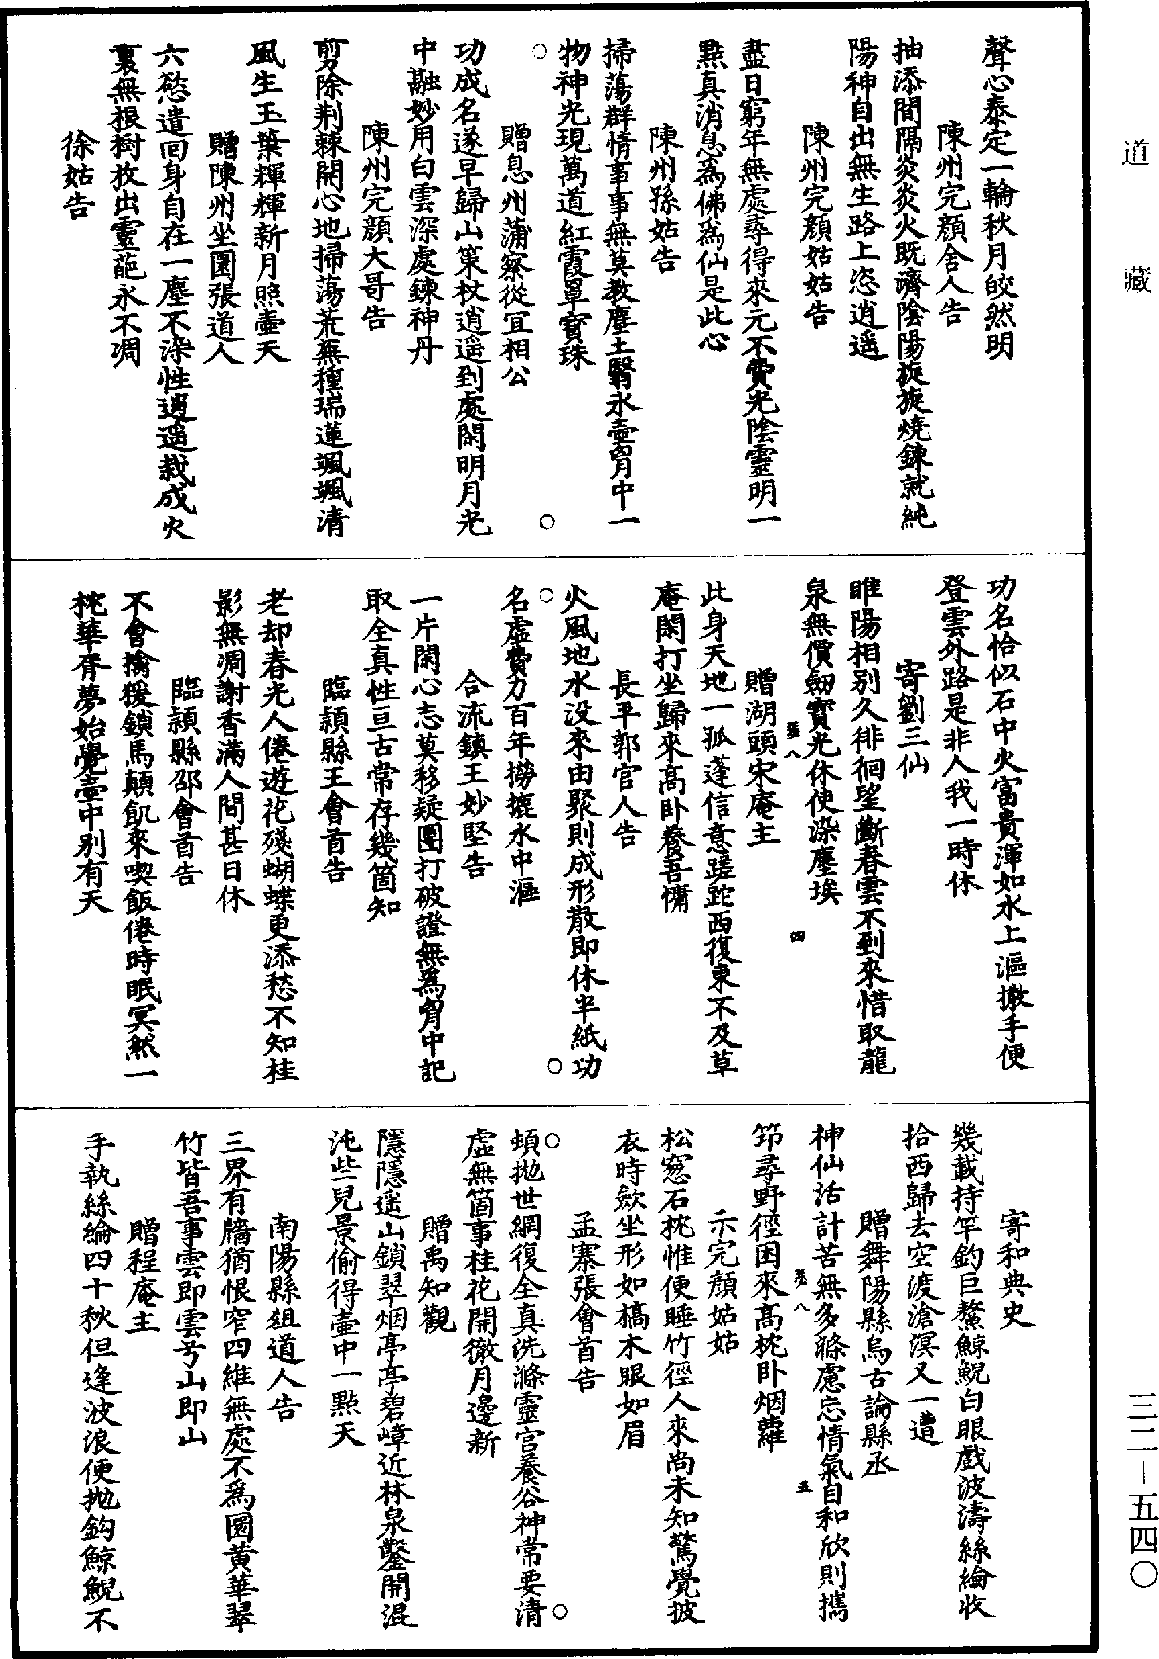 道藏
聲心泰定一輪秋月皎然明
陳州完顏舍人告
抽添間隔炎炎火既濟陰陽旋旋燒鍊就純
陽神自出無生路上恣逍遥
陳州完顏姑姑告
盡日窮年無處尋得來元不費光陰靈明一
點真消息為佛為仙是此心
陳州孫姑告
掃蕩群情事事無莫教塵土翳氷壺胷中一
物神光現萬道紅霞罩寳珠
贈息州蒲察從宜相公
功成名遂早歸山策杖逍遥到處閑明月光
中融妙用白雲深處鍊神丹
陳州完顏大哥告
剪除荆棘開心地掃蕩荒蕪種瑞蓮颯颯清
風生玉葉輝輝新月照壺天
贈陳州坐圜張道人
六慾遣回身自在一塵不染性逍遥栽成火
裏無根樹放出靈葩永不凋
徐姑告
功名恰似石中火富貴渾如水上漚撒手便
登雲外路是非人我一時休
寄劉三仙
睢陽相别久徘徊望斷春雲不到來惜取龍
泉無價劒寳光休使染塵埃
贈湖頭宋庵主
此身天地一孤蓬信意蹉跎西復東不及草
庵閑打坐歸來高卧養吾慵
長平郭官人告
火風地水没來由聚則成形散即休半紙功
名虚費力百年撈摝水中漚
合流鎮王妙堅告
一片閑心志莫移疑團打破證無為胷中記
取全真性亘古常存幾箇知
臨潁縣王會首告
老却春光人倦遊花殘蝴蝶更添愁不知桂
影無凋謝香滿人間甚日休
臨潁縣邵會首告
不會擒猨鎖馬顛飢來喫飯倦時眠冥然一
枕華胥夢始覺壺中别有天
寄和典史
幾載持竿釣巨鰲鯨鯢白眼戲波濤絲綸收
拾西歸去空渡滄溟又一遭
贈舞陽縣烏古論縣丞
神仙活計苦無多滌慮忘情氣自和欣則攜
笻尋野徑困來高枕卧烟蘿
示完顏姑姑
松窓石枕惟便睡竹徑人來尚未知驚覺披
衣時歛坐形如槁木眼如眉
孟寨張會首告
頓抛世網復全真洗滌靈宫養谷神常要清
虚無箇事桂花開徹月邊新
贈禹知觀
隱隱遥山鎖翠烟亭亭碧嶂近林泉鑿開混
沌些兒景偷得壺中一點天
南陽縣組道人告
三界有牆猶恨窄四維無處不為圜黄華翠
竹皆吾事雲即雲兮山即山
贈程庵主
手執絲綸四十秋但逢波浪便抛鈎鯨鯢不
三二－五四〇